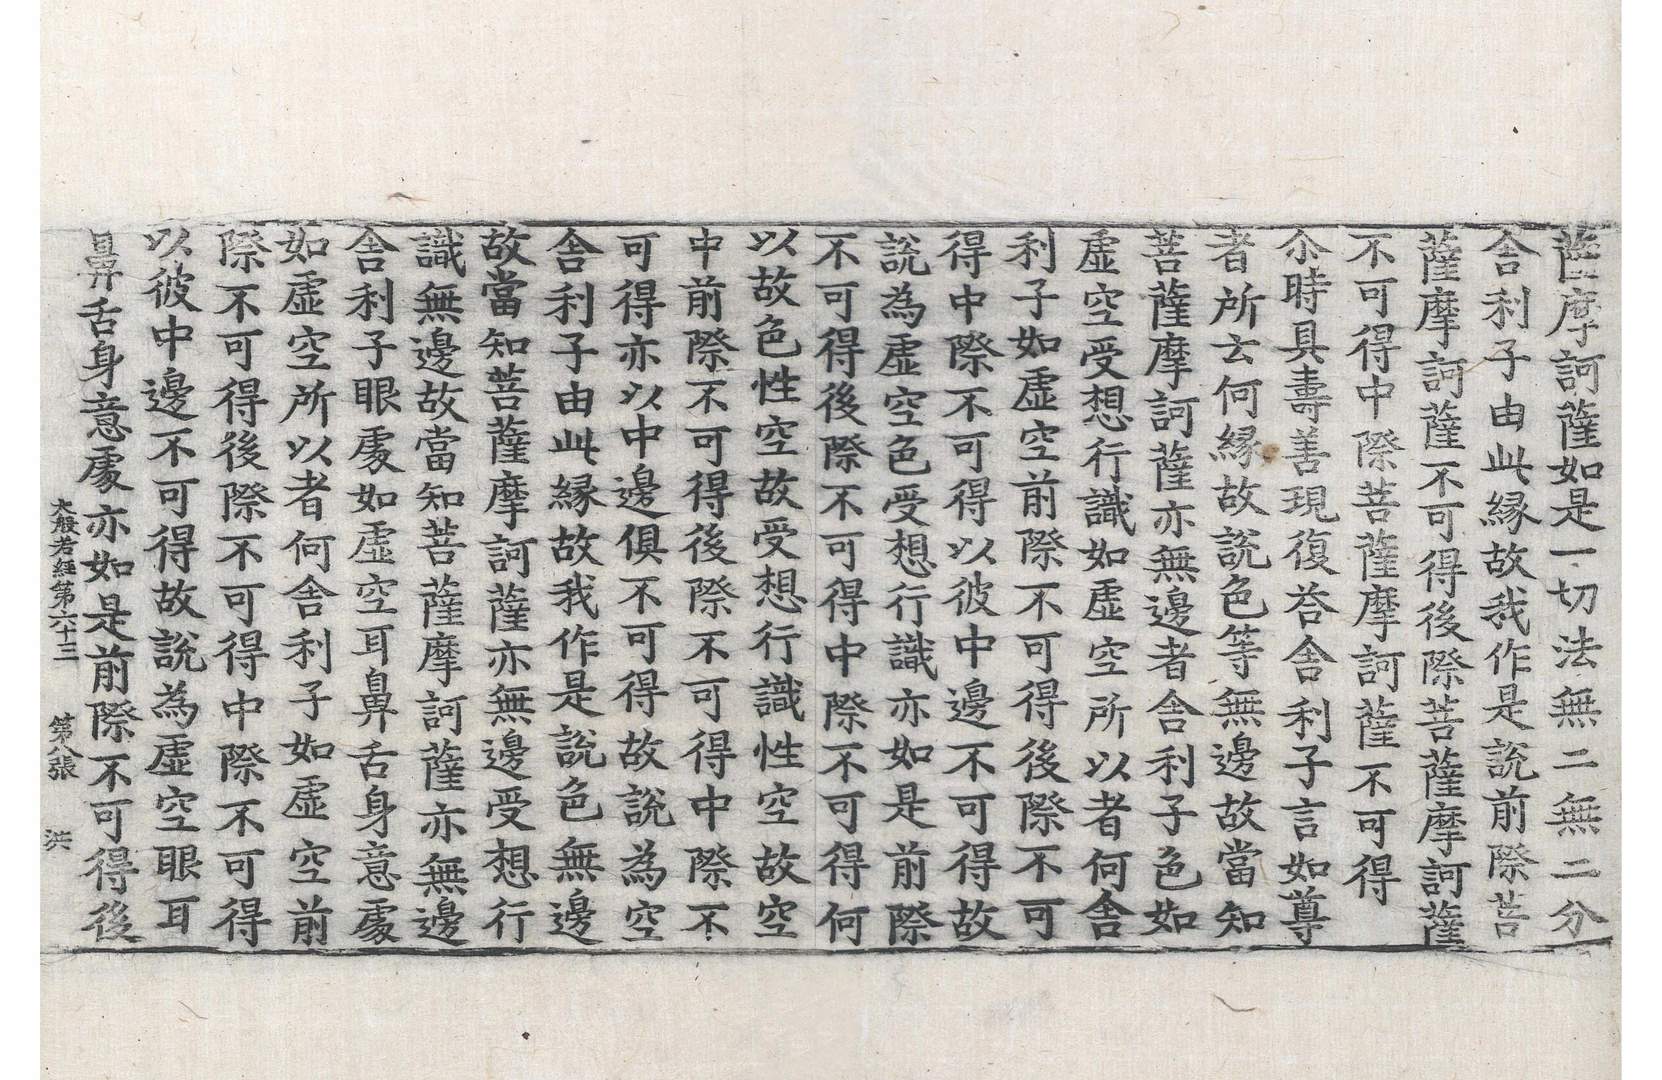 薩摩訶薩如是一切法無二無二分
舎利子由此縁故我作是說前際菩
薩摩訶薩不可得後際菩薩摩訶薩
不可得中際菩薩摩訶薩不可得
尒時具壽善現復荅舎利子言如尊
者所云何縁故說色等無邊故當知
菩薩摩訶薩亦無邊者舎利子色如
虛空受想行識如虛空所以者何舎
利子如虛空前際不可得後際不可
得中際不可得以彼中邊不可得故
說為虛空色受想行識亦如是前際
不可得後際不可得中際不可得何
以故色性空故受想行識性空故空
中前際不可得後際不可得中際不
可得亦以中邊俱不可得故說為空
舎利子由此縁故我作是說色無邊
故當知菩薩摩訶薩亦無邊受想行
識無邊故當知菩薩摩訶薩亦無邊
舎利子眼處如虛空耳鼻舌身意處
如虛空所以者何舎利子如虛空前
際不可得後際不可得中際不可得
以彼中邊不可得故說為虛空眼耳
鼻舌身意處亦如是前際不可得後
大般若経第六十三 第八張 洪